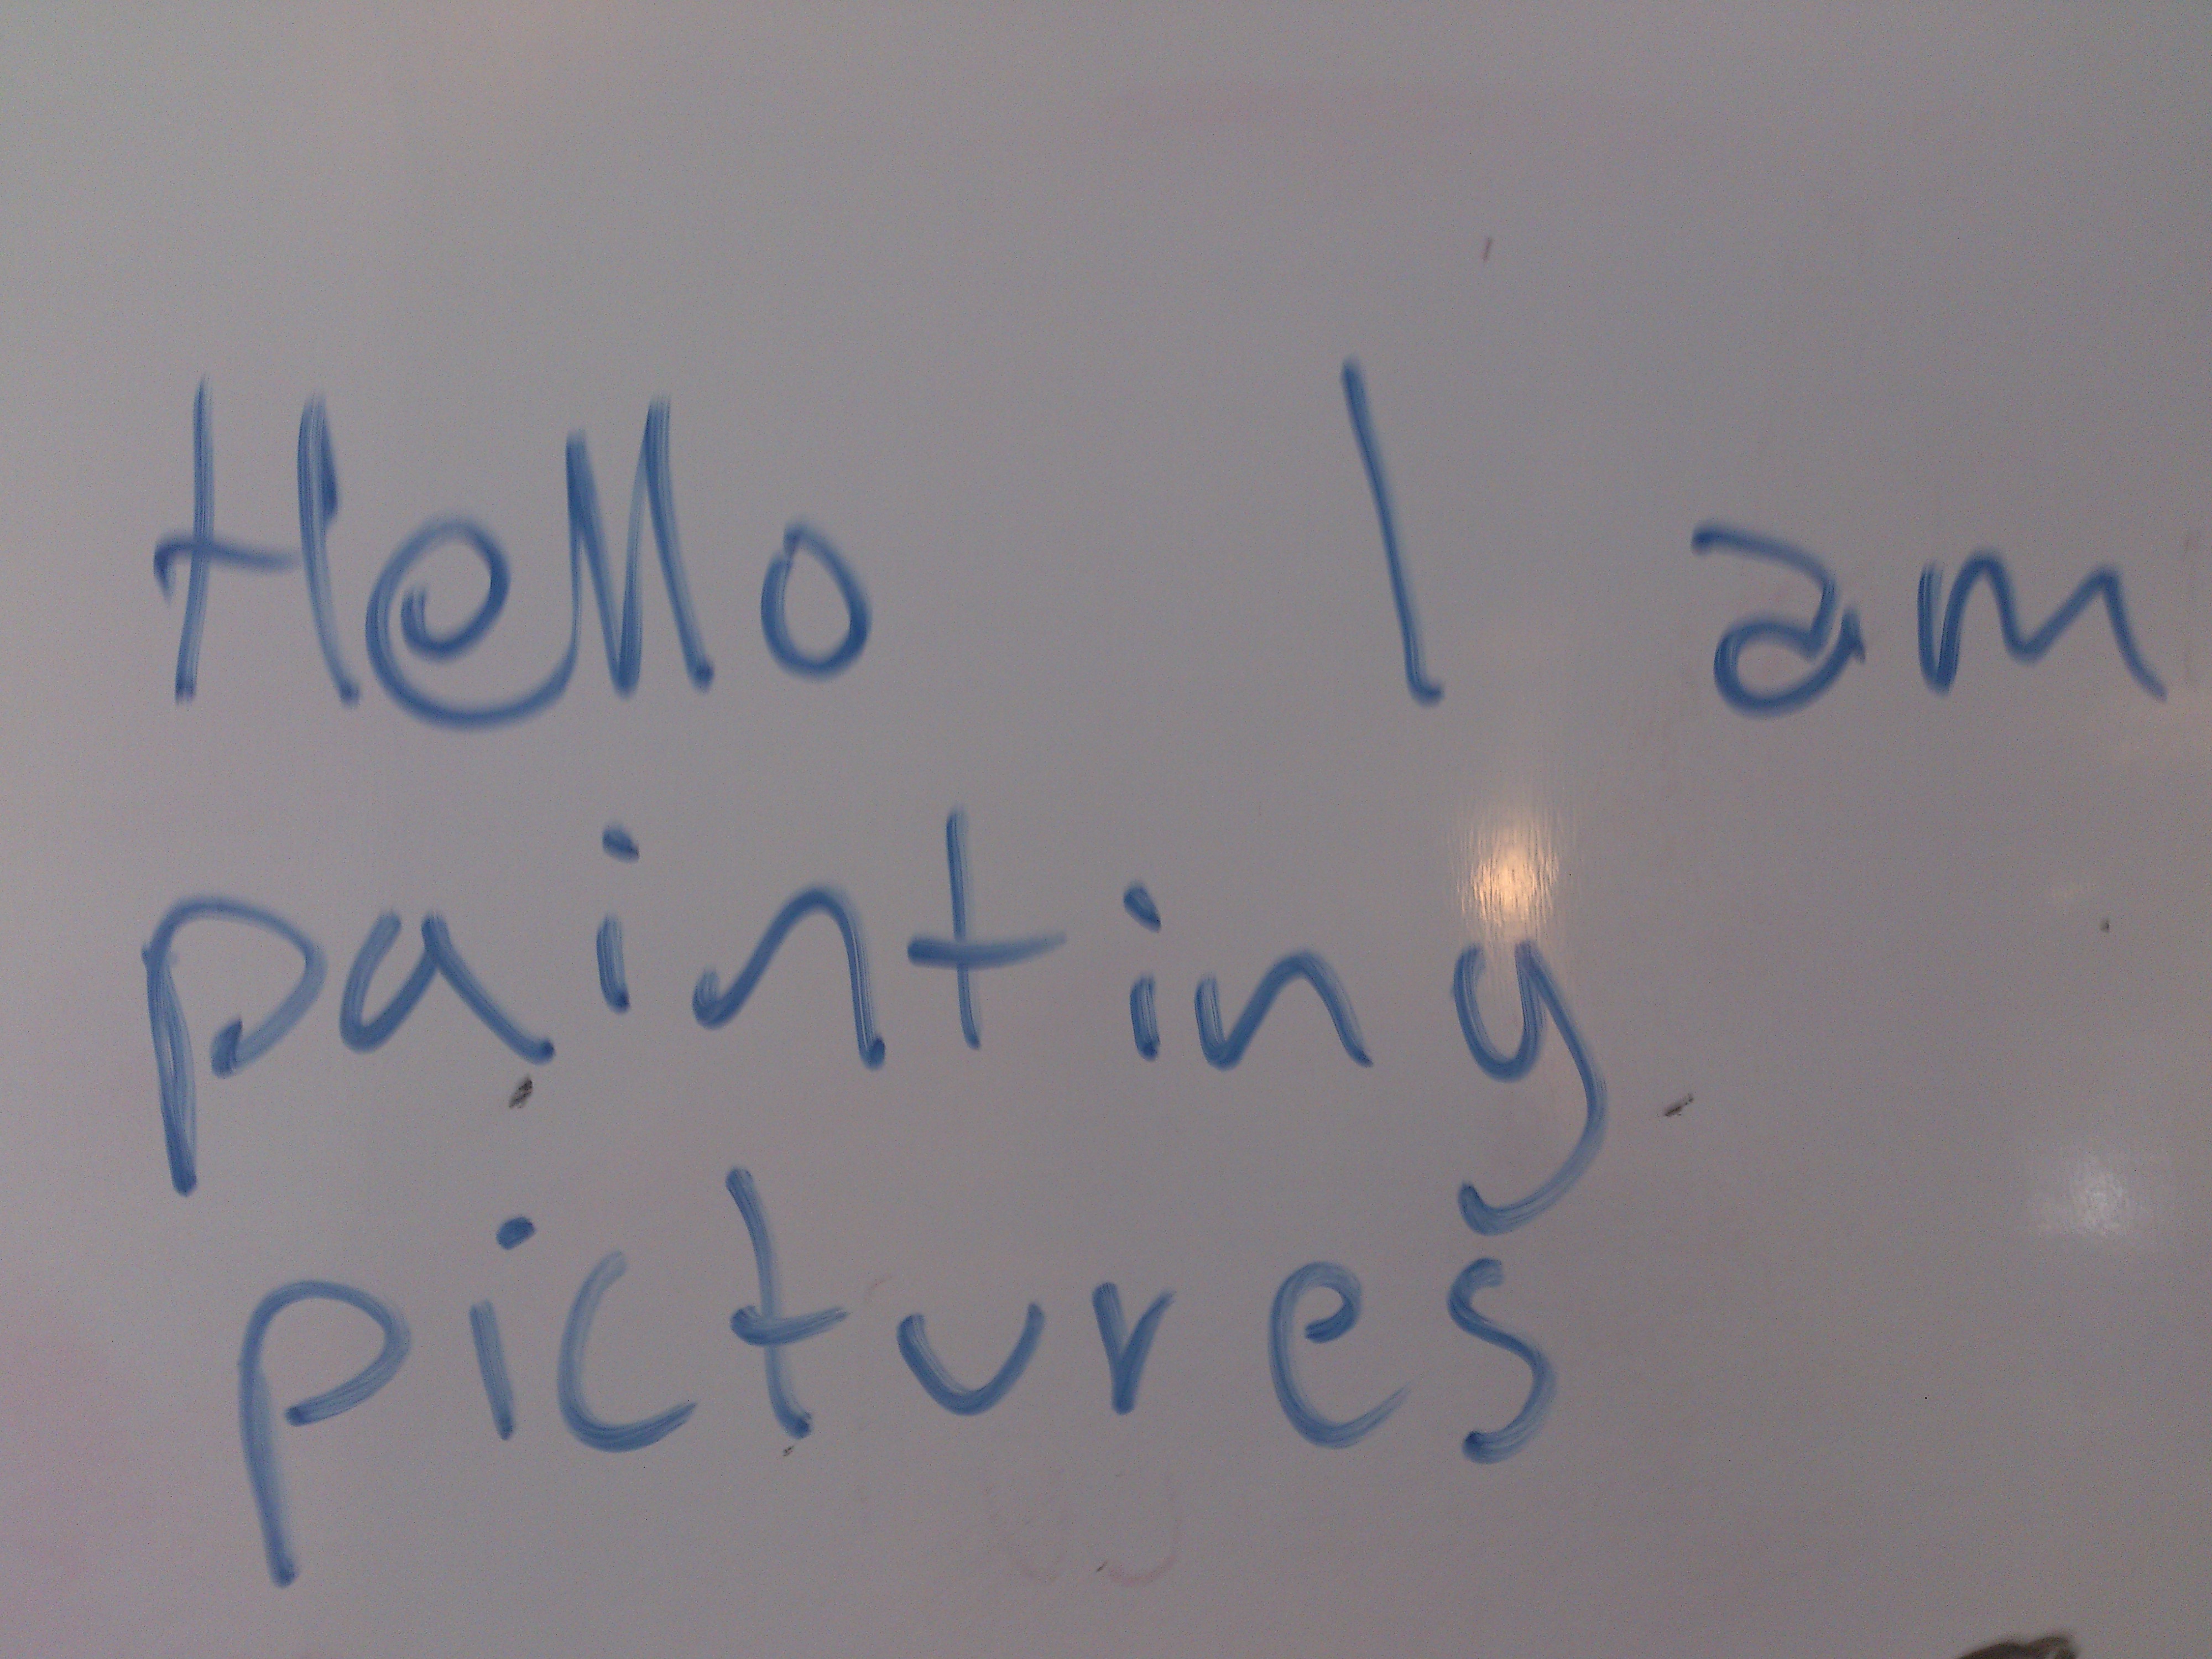 Hello I am
painting
pictures